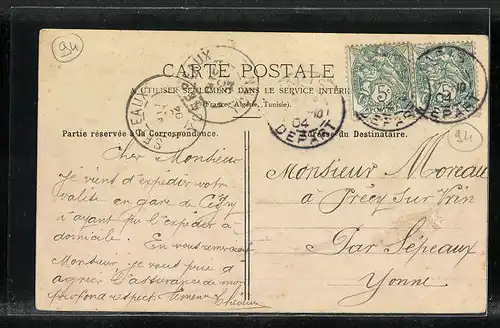 94
CARTE POSTALE
A UTILISER SEULEMENT DANS LE SERVICE INTÉR
(France, Algérie, Tunisie).
Partie réservée à la Correspondance.
Adresse du Destinataire.
Cher Monsieur
Je viens d'expédier votre
valise en gare de Cézy
n'ayant pu l'expédier à
domicile. En vous remerciant
Monsieur je vous prie d
agréer l'assurance de mon
profond respect.
Monsieur Moreau
à Précy Sur Vrin
Par Sépeaux
Yonne
5
5
04
DEPART
DEPART
SEPEAUX
94